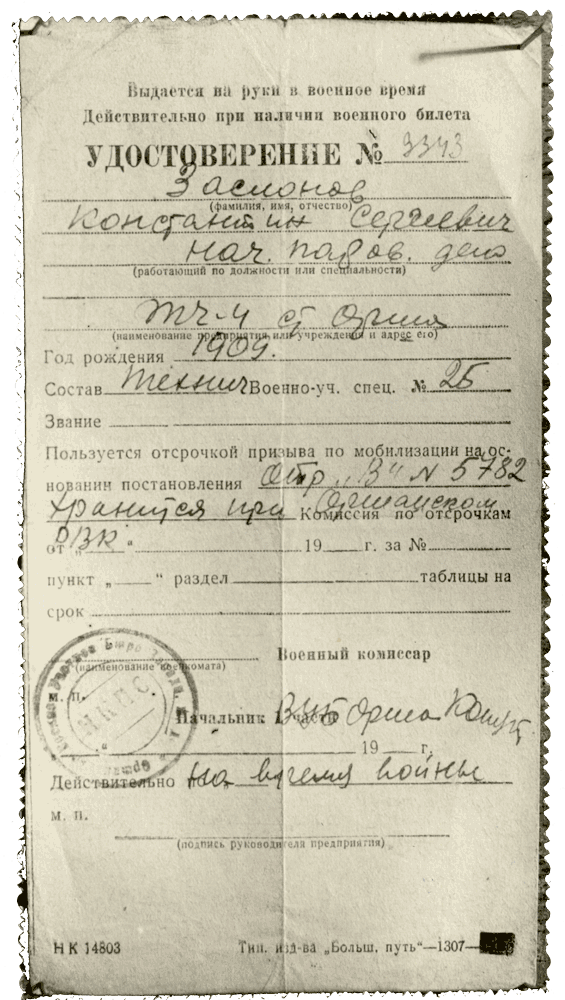 Выдается на руки в военное время
Действительно при наличии военного билета
УДОСТОВЕРЕНИЕ № 3343
Заслонов
(фамилия, имя, отчество)
Константин Сергеевич
нач. паров. депо
(работающий по должности или специальности)
ТЧ-4 ст Орша
(наименование предприятия или учреждения и адрес его)
Год рождения 1909.
Состав технич Военно-уч. спец. № 25
Звание
Пользуется отсрочкой призыва по мобилизации на ос-
новании постановления № 5782
хранится при Оршанском
Комиссия по отсрочкам
РВК
от „ “ 19 г. за №
пункт „ “ раздел таблицы на
срок
Военный комиссар
(наименование военкомата)
м. п.
НКПС
Начальник части Орша
19 г.
Действительно на время войны
м. п.
(подпись руководителя предприятия)
НК 14803 Тип. изд-ва „Больш. путь“—1307—